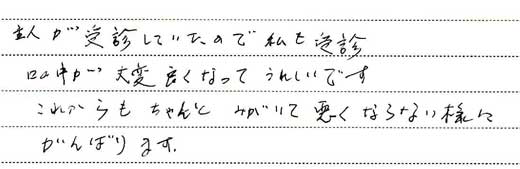 主人が受診していたので私も受診
口の中が大変良くなってうれしいです
これからもちゃんとみがいて悪くならない様に
がんばります.